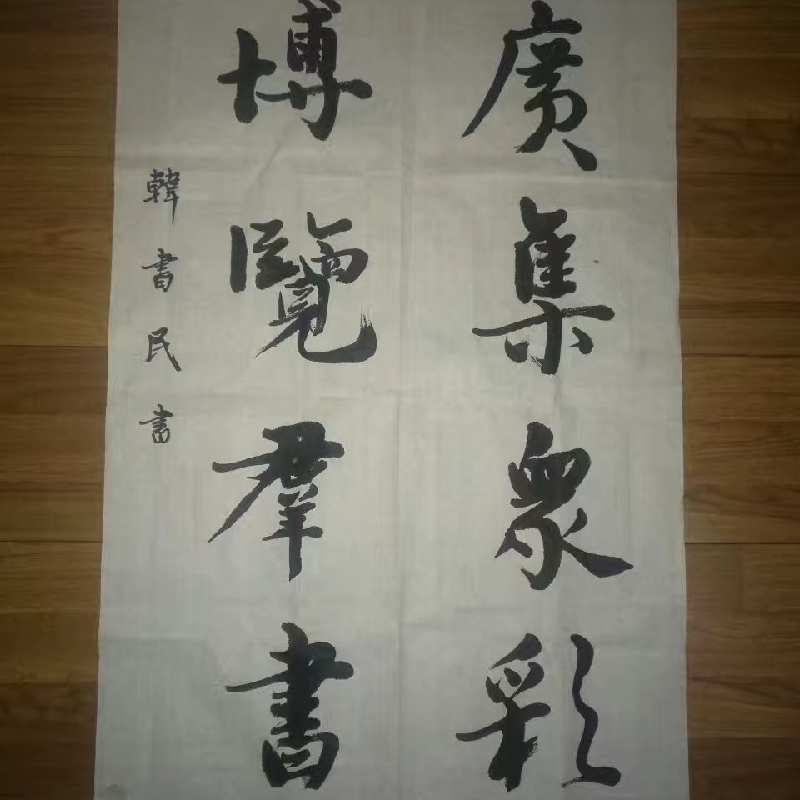 廣集衆彩
博覽羣書
韓書民書